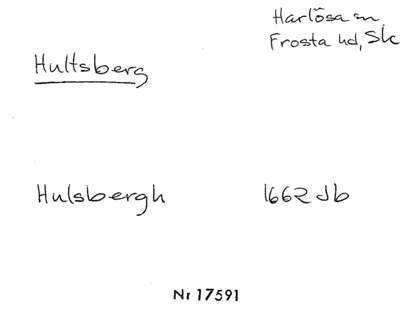 Harlösa sn,
Frosta hd, Sk
Hultsberg
Hulsbergh 1662 Jb
Nr 17591